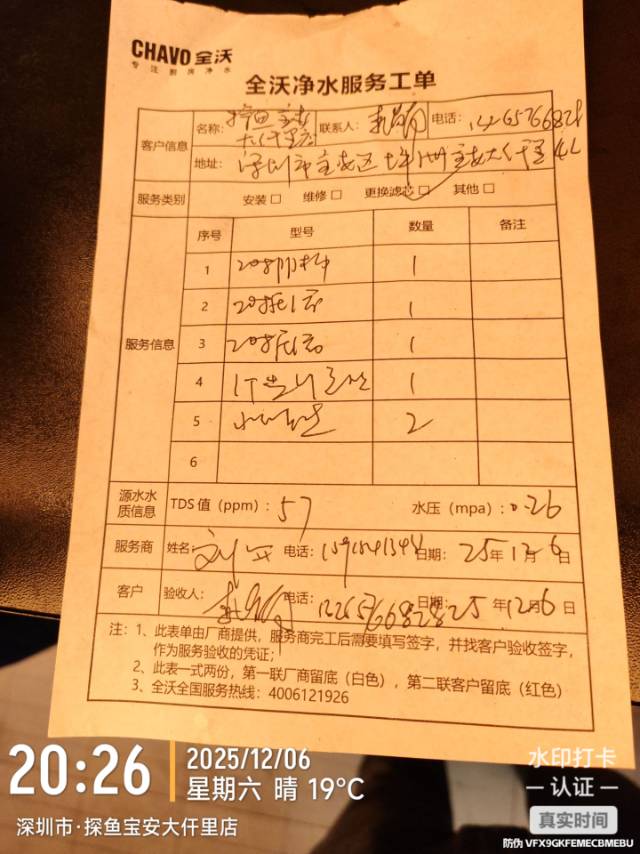 CHAVO 全沃
专注厨房净水
全沃净水服务工单
客户信息
名称: 探鱼宝安大仟里店 联系人: 电话:
地址: 深圳市宝安区 宝安大仟里
服务类别 安装□ 维修□ 更换滤芯□ 其他□
服务信息
序号 型号 数量 备注
1 20寸 1
2 20寸 1
3 20寸 1
4 1
5 2
6
源水水质信息 TDS 值（ppm）: 57 水压（mpa）: 0.26
服务商 姓名: 刘 电话: 日期: 25年12月6日
客户 验收人: 电话: 日期: 25年12月6日
注：1、此表单由厂商提供，服务商完工后需要填写签字，并找客户验收签字，
作为服务验收的凭证；
2、此表一式两份，第一联厂商留底（白色），第二联客户留底（红色）
3、全沃全国服务热线：4006121926
20:26
2025/12/06
星期六 晴 19℃
深圳市·探鱼宝安大仟里店
水印打卡
认证
真实时间
防伪 VFX9GKFEMECBMEBU